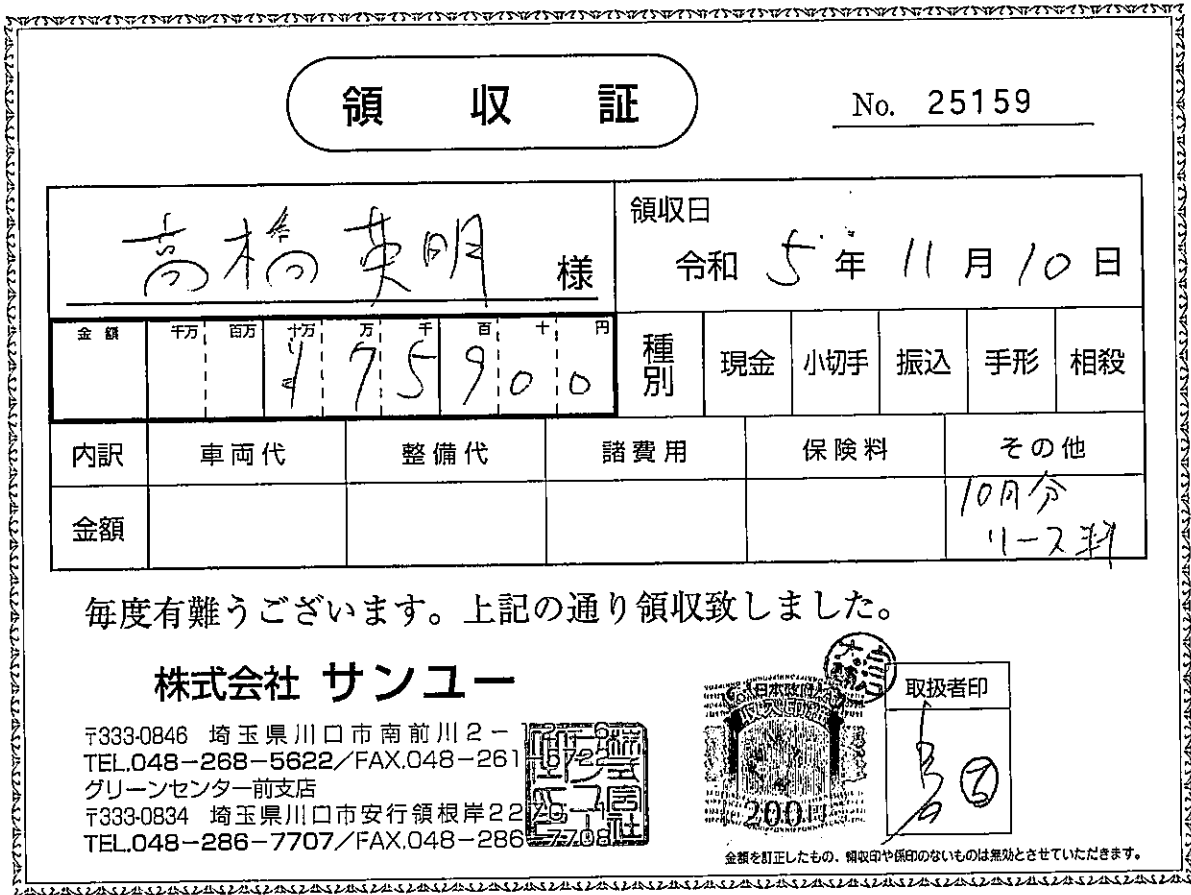 領収証
No. 25159
高橋英明 様
領収日
令和 5年 11月 10日
金額 千万 百万 十万 万 千 百 十 円
1 7 5 9 0 0
種別 現金 小切手 振込 手形 相殺
内訳 車両代 整備代 諸費用 保険料 その他
金額 10月分
リース料
毎度有難うございます。上記の通り領収致しました。
株式会社 サンユー
〒333-0846 埼玉県川口市南前川2-
TEL.048-268-5622/FAX.048-261
グリーンセンター前支店
〒333-0834 埼玉県川口市安行領根岸22
TEL.048-286-7707/FAX.048-286-7708
日本政府
収入印紙
200円
取扱者印
金額を訂正したもの、領収印や係印のないものは無効とさせていただきます。